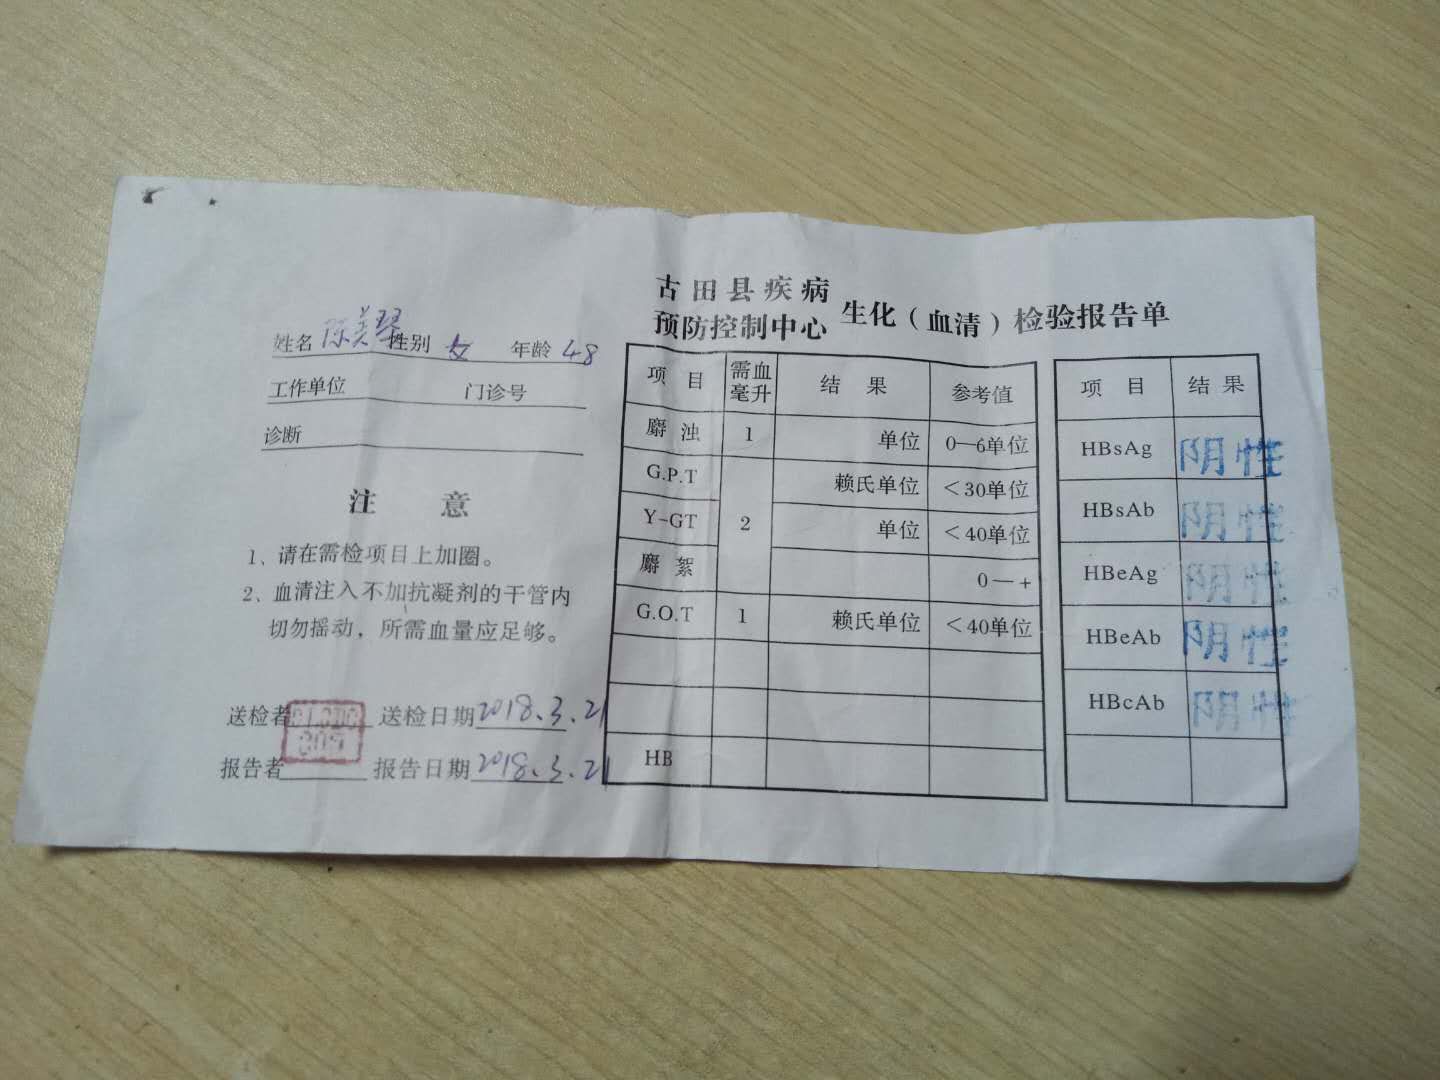 古田县疾病
预防控制中心 生化（血清）检验报告单
姓名 陈美琴 性别 女 年龄 48
工作单位 门诊号
诊断
注 意
1、请在需检项目上加圈。
2、血清注入不加抗凝剂的干管内
切勿摇动，所需血量应足够。
送检者 送检日期 2018.3.21
报告者 报告日期 2018.3.21
项 目 需血毫升 结 果 参考值
麝 浊 1 单位 0—6单位
G.P.T 2 赖氏单位 <30单位
Y-GT 单位 <40单位
麝 絮 0—+
G.O.T 1 赖氏单位 <40单位
HB
项 目 结 果
HBsAg 阴性
HBsAb 阴性
HBeAg 阴性
HBeAb 阴性
HBcAb 阴性